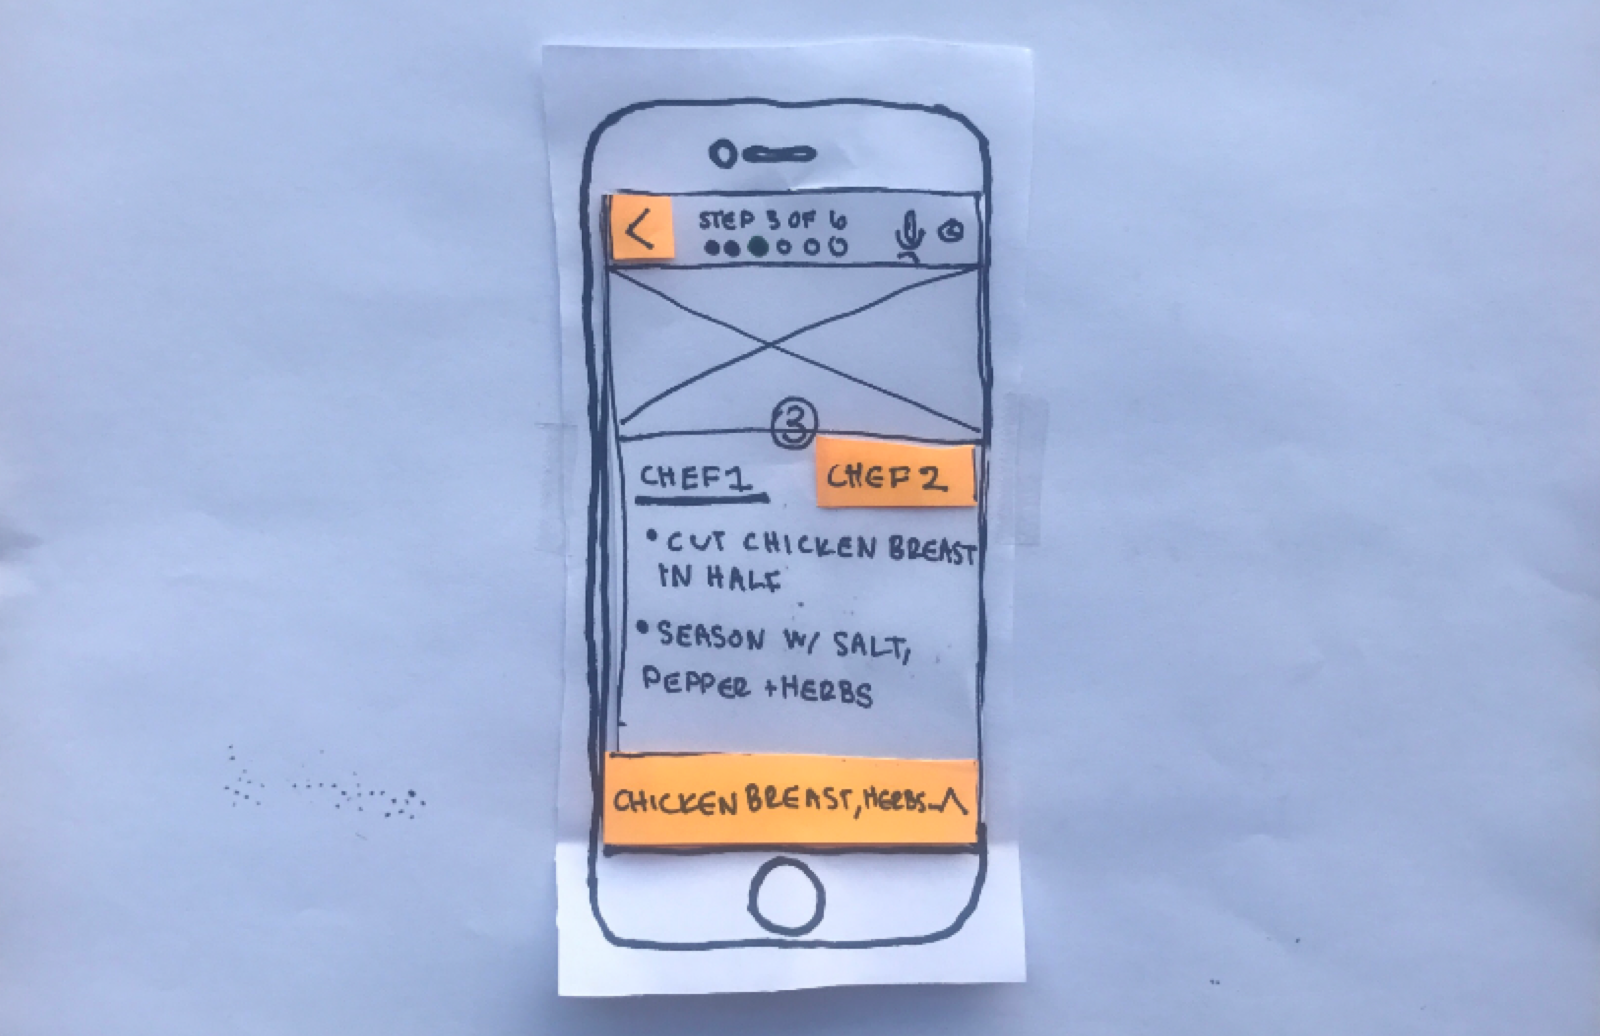 <
STEP 3 OF 6
3
CHEF 1
CHEF 2
• CUT CHICKEN BREAST
IN HALF
• SEASON W/ SALT,
PEPPER + HERBS
CHICKEN BREAST, HERBS